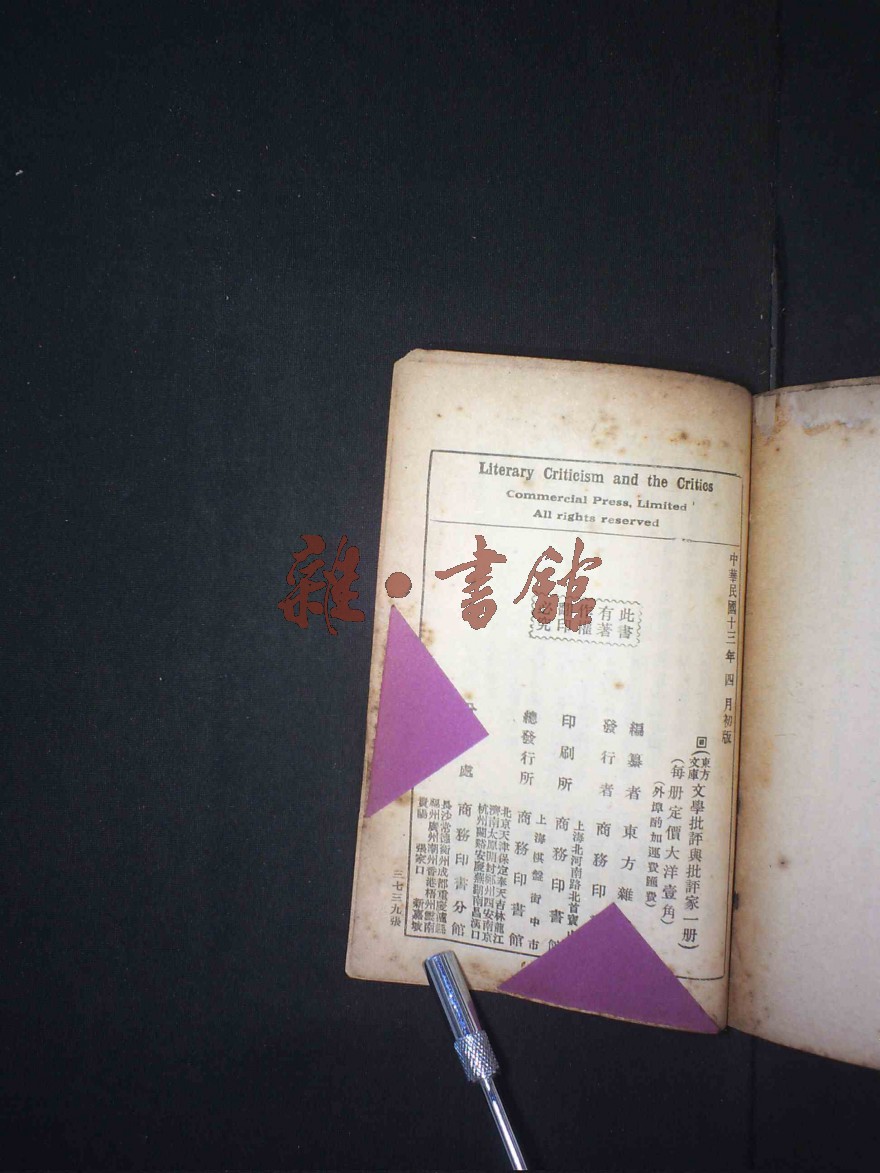 Literary Criticism and the Critics
Commercial Press, Limited
All rights reserved
雜·書館
此書
有著
必究
中華民國十三年四月初版
東方
文庫
文學批評與批評家一册)
(每册定價大洋壹角)
(外埠酌加運費匯費)
編纂者 東方雜
發行者 商務印
上海北河南路北首寶山
印刷所 商務印書館
上海棋盤街中市
總發行所 商務印書館
北京天津保定奉天吉林龍江
濟南太原開封鄭州西安南京
杭州蘭谿安慶蕪湖南昌漢口
處 商務印書分館
長沙常德衡州成都重慶瀘縣
福州廣州潮州香港梧州雲南
貴陽 張家口 新嘉坡
三七三九張